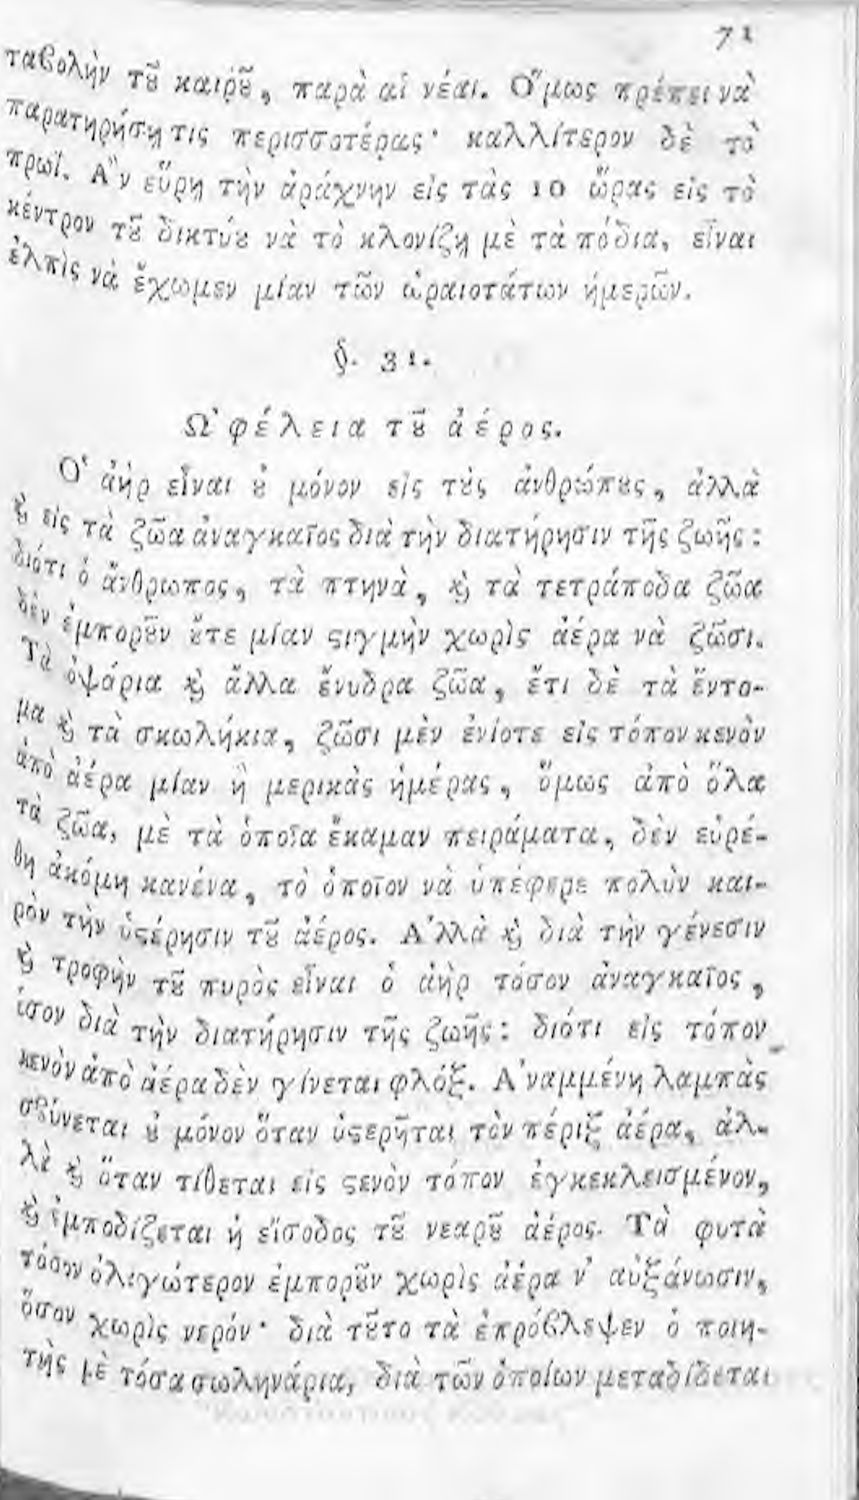 71
ταβολὴν τȣ͂ καιρȣ͂, παρὰ αἱ νέαι. Ὅμως πρέπει νὰ
παρατηρήσῃ τις περισσοτέρας· καλλίτερον δὲ τὸ
πρωΐ. Ἂν εὕρῃ τὴν ἀράχνην εἰς τὰς 10 ὥρας εἰς τὸ
κέντρον τȣ͂ δικτύȣ νὰ τὸ κλονίζῃ μὲ τὰ πόδια, εἶναι
ἐλπὶς νὰ ἔχωμεν μίαν τῶν ὡραιοτάτων ἡμερῶν.
§. 31.
Ὠφέλεια τȣ͂ ἀέρος.
Ὁ ἀὴρ εἶναι ȣ̓ μόνον εἰς τȣ̀ς ἀνθρώπȣς, ἀλλὰ
ϗ̀ εἰς τὰ ζῶα ἀναγκαῖος διὰ τὴν διατήρησιν τῆς ζωῆς:
διότι ὁ ἄνθρωπος, τὰ πτηνὰ, ϗ̀ τὰ τετράποδα ζῶα
δὲν ἐμπορȣ͂ν ȣ̓́τε μίαν ϛιγμὴν χωρὶς ἀέρα νὰ ζῶσι.
Τὰ ὀψάρια ϗ̀ ἄλλα ἔνυδρα ζῶα, ἔτι δὲ τὰ ἔντο-
μα ϗ̀ τὰ σκωλήκια, ζῶσι μὲν ἐνίοτε εἰς τόπον κενὸν
ἀπὸ ἀέρα μίαν ἢ μερικὰς ἡμέρας, ὅμως ἀπὸ ὅλα
τὰ ζῶα, μὲ τὰ ὁποῖα ἔκαμαν πειράματα, δὲν εὑρέ-
θη ἀκόμη κανένα, τὸ ὁποῖον νὰ ὑπέφερε πολὺν και-
ρὸν τὴν ὑϛέρησιν τȣ͂ ἀέρος. Ἀλλὰ ϗ̀ διὰ τὴν γένεσιν
ϗ̀ τροφὴν τȣ͂ πυρὸς εἶναι ὁ ἀὴρ τόσον ἀναγκαῖος,
ὅσον διὰ τὴν διατήρησιν τῆς ζωῆς: διότι εἰς τόπον
κενὸν ἀπὸ ἀέρα δὲν γίνεται φλόξ. Ἀναμμένη λαμπὰς
σβύνεται ȣ̓ μόνον ὅταν ὑϛερῆται τὸν πέριξ ἀέρα, ἀλ-
λὰ ϗ̀ ὅταν τίθεται εἰς ϛενὸν τόπον ἐγκεκλεισμένον,
ϗ̀ ἐμποδίζεται ἡ εἴσοδος τȣ͂ νεαρȣ͂ ἀέρος. Τὰ φυτὰ
τόσον ὀλιγώτερον ἐμπορȣ͂ν χωρὶς ἀέρα ν' αὐξάνωσιν,
ὅσον χωρὶς νερόν· διὰ τȣ͂το τὰ ἐπρόβλεψεν ὁ ποιη-
τὴς μὲ τόσα σωληνάρια, διὰ τῶν ὁποίων μεταδίδεται